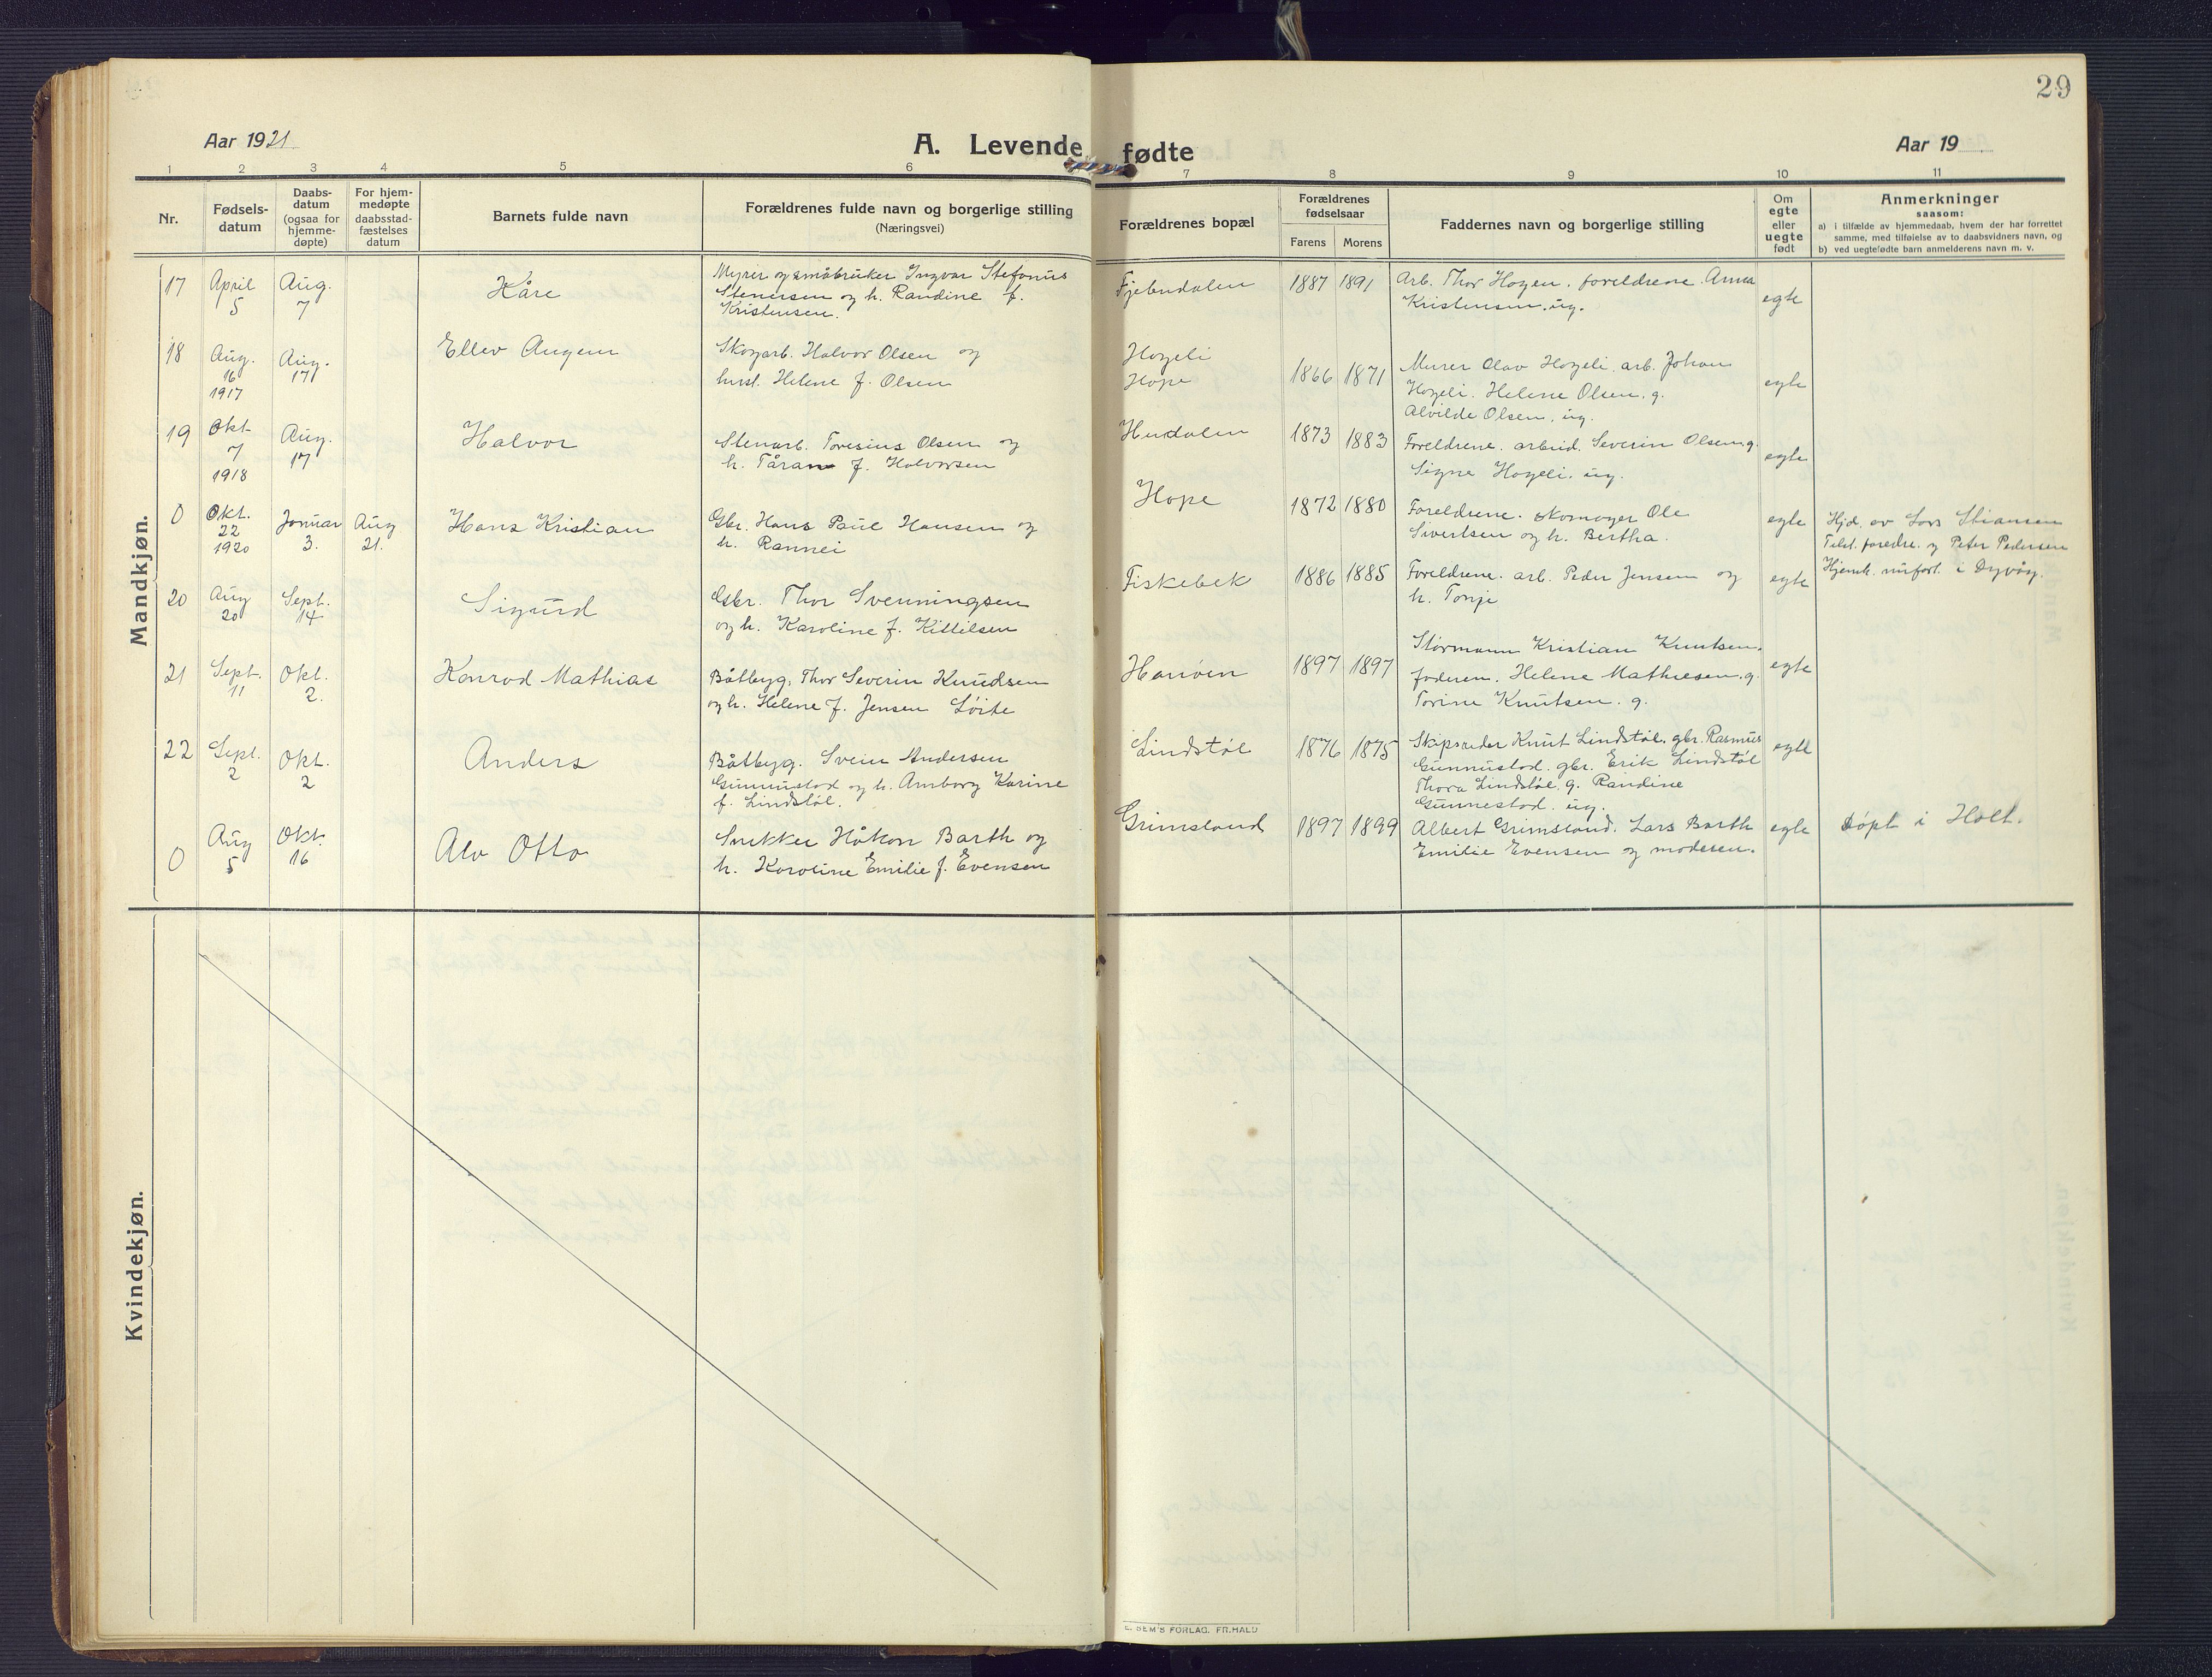 29
Aar 1921
A. Levende fødte
Aar 19
1 2 3 4 5 6 7 8 9 10 11
Nr.
Fødsels-
datum
Daabs-
datum
(ogsaa for
hjemme-
døpte)
For hjem-
medøpte
daabsstad-
fæstelses
datum
Barnets fulde navn
Forældrenes fulde navn og borgerlige stilling
(Næringsvei)
Forældrenes bopæl
Forældrenes
fødselsaar
Farens Morens
Faddernes navn og borgerlige stilling
Om
egte
eller
uegte
født
Anmerkninger
saasom:
a) i tilfælde av hjemmedaab, hvem der har forrettet
samme, med tilføielse av to daabsvidners navn, og
b) ved uegtefødte barn anmelderens navn m. v.
Mandkjøn.
17
April
5
Aug.
7
Kåre
Myrer og småbruker Ingvar Stefanus
Stenersen og h. Randine f.
Kristensen.
Fjebudalen
1887 1891
Arb. Thor Hagen. foreldrene. Anna
Kristensen. ug.
egte
18
Aug.
16
1917
Aug.
17
Ellev Angem
Skogarb. Halvor Olsen og
hust. Helene f. Olsen
Hogeli
Hope
1866 1871
Murer Olav Hogeli. arb. Johan
Hogeli. Helene Olsen. g.
Alvilde Olsen. ug.
egte
19
Okt.
7
1918
Aug.
17
Halvor
Stenarb. Toresius Olsen og
h. Tåran f. Halvorsen
Hudalen
1873 1883
Foreldrene. arbeid. Severin Olsen g.
Signe Hogeli. ug.
egte
0
Okt.
22
1920
Januar
3.
Aug
21.
Hans Kristian
Gbr. Hans Paul Hansen og
h. Rannei
Hope
1872 1880
Foreldrene. skomager Ole
Sivertsen og h. Bertha.
egte
Hjd. av Lars Stiansen
Tilst. foreldre. og Peter Pedersen
Hjemd. innført i Dyvåg.
20
Aug
20
Sept.
14
Sigurd
Gbr. Thor Svenningsen
og h. Karoline f. Kittilsen
Fiskebek
1886 1885
Foreldrene. arb. Peder Jensen og
h. Tonje
egte
21
Sept.
11
Okt.
2.
Konrad Mathias
Båtbyg. Thor Severin Knudsen
og h. Helene f. Jensen Løite
Hanøen
1897 1897
Stormann Kristian Knutsen.
faderen. Helene Mathiesen. g.
Torine Knutsen. g.
egte
22
Sept.
2
Okt.
2
Anders
Båtbyg. Svein Andersen
Gunnustad og h. Amborg Karine
f. Lindstøl.
Lindstøl
1876 1875
Skipsreder Knut Lindstøl. gbr. Rasmus
Gunnustad. gbr. Erik Lindstøl
Thora Lindstøl. g. Randine
Gunnestad. ug.
egte
0
Aug
5
Okt.
16
Alv Otto
Snekker Håkon Barth og
h. Karoline Emilie f. Evensen
Grimsland
1897 1899
Albert Grimsland. Lars Barth
Emilie Evensen og moderen.
egte
Døpt i Holt.
Kvindekjøn.
E. SEM'S FORLAG. FR.HALD